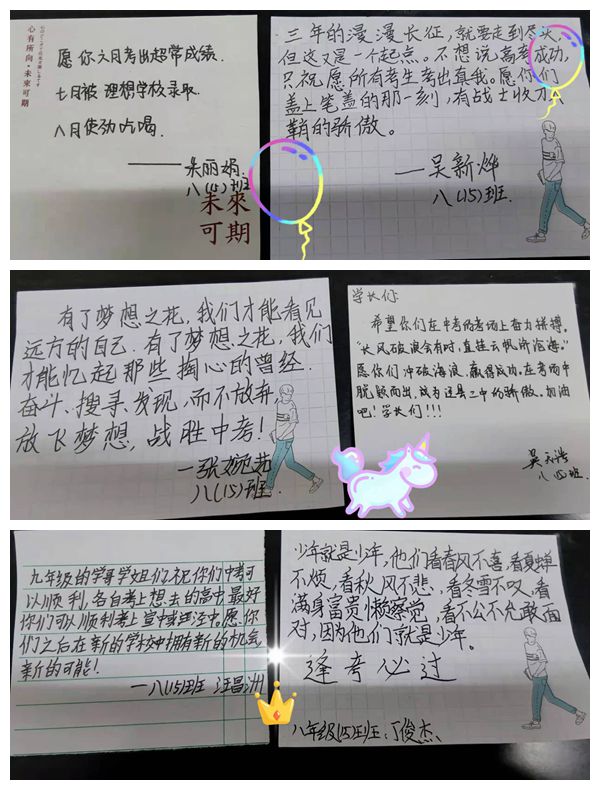 心有所向·未来可期
愿你六月考出超常成绩.
七月被 理想学校录取
八月使劲吃喝.
——朱丽娟.
八(15)班
未來
可期
三年的漫漫长征，就要走到尽头，
但这又是一个起点。不想说高考成功，
只祝愿所有考生考出真我。愿你们
盖上笔盖的那一刻，有战士收刀入
鞘的骄傲。
—吴新烨
八(15)班.
有了梦想之花，我们才能看见
远方的自己.有了梦想之花，我们
才能忆起那些掏心的曾经.
奋斗、搜寻、发现，而不放弃，
放飞梦想，战胜中考!
八(15)班.
学长们:
希望你们在中考的考场上奋力拼搏。
“长风破浪会有时，直挂云帆济沧海。”
愿你们冲破海浪，赢得成功，在考场中
脱颖而出，成为这届三中的骄傲。加油
吧!学长们!!!
八(15)班.
九年级的学哥学姐们，祝你们中考可
以顺利，各自考上想去的高中，最好
你们可以顺利考上堂中或延中.愿你
们之后在新的学校中拥有新的机气
新的可能!
—八(15)班 汪昌洲
少年就是少年，他们看春风不喜，看夏蝉
不烦，看秋风不悲，看冬雪不叹，看
满身富贵懒察觉，看不公不允敢面
对，因为他们就是少年。
逢考必过
八年级(15)班:丁俊杰、